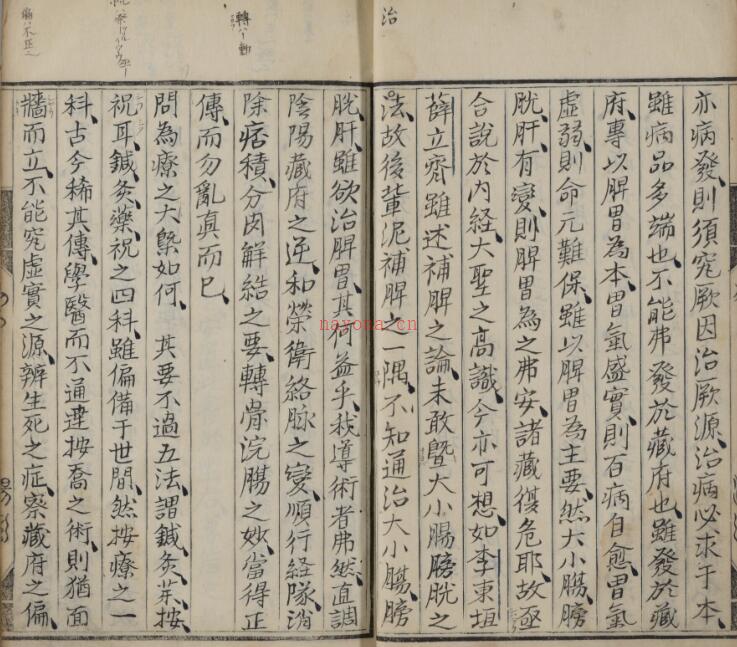 治
亦病發則須究厥因治厥源治病必求于本
雖病品多端也不能弗發於藏府也雖發於藏
府專以脾胃為本胃氣盛實則百病自愈胃氣
虛弱則命元難保雖以脾胃為主要然大小腸膀
胱肝有變則脾胃為之弗安諸藏復危耶故亟
合說於内経大聖之高識今亦可想如李東垣
薛立齋雖述補脾之論未敢曁大小腸膀胱之
法故後輩泥補脾之一隅不知通治大小腸膀
胱肝雖欲治脾胃其何益乎我導術者弗然直調
陰陽藏府之逆和榮衛絡脉之變順行経隊消
除痞積分肉解結之要轉骨浣腸之妙當得正
傳而勿亂真而已
問為療之大槩如何 其要不過五法謂鍼灸茱按
祝耳鍼灸藥祝之四科雖偏備于世間然按療之一
科古今稀其傳學醫而不通達按喬之術則猶面
牆而立不能究虛實之源辨生死之症察藏府之偏
轉ハ動
偏ハ不正之
nayona.cn